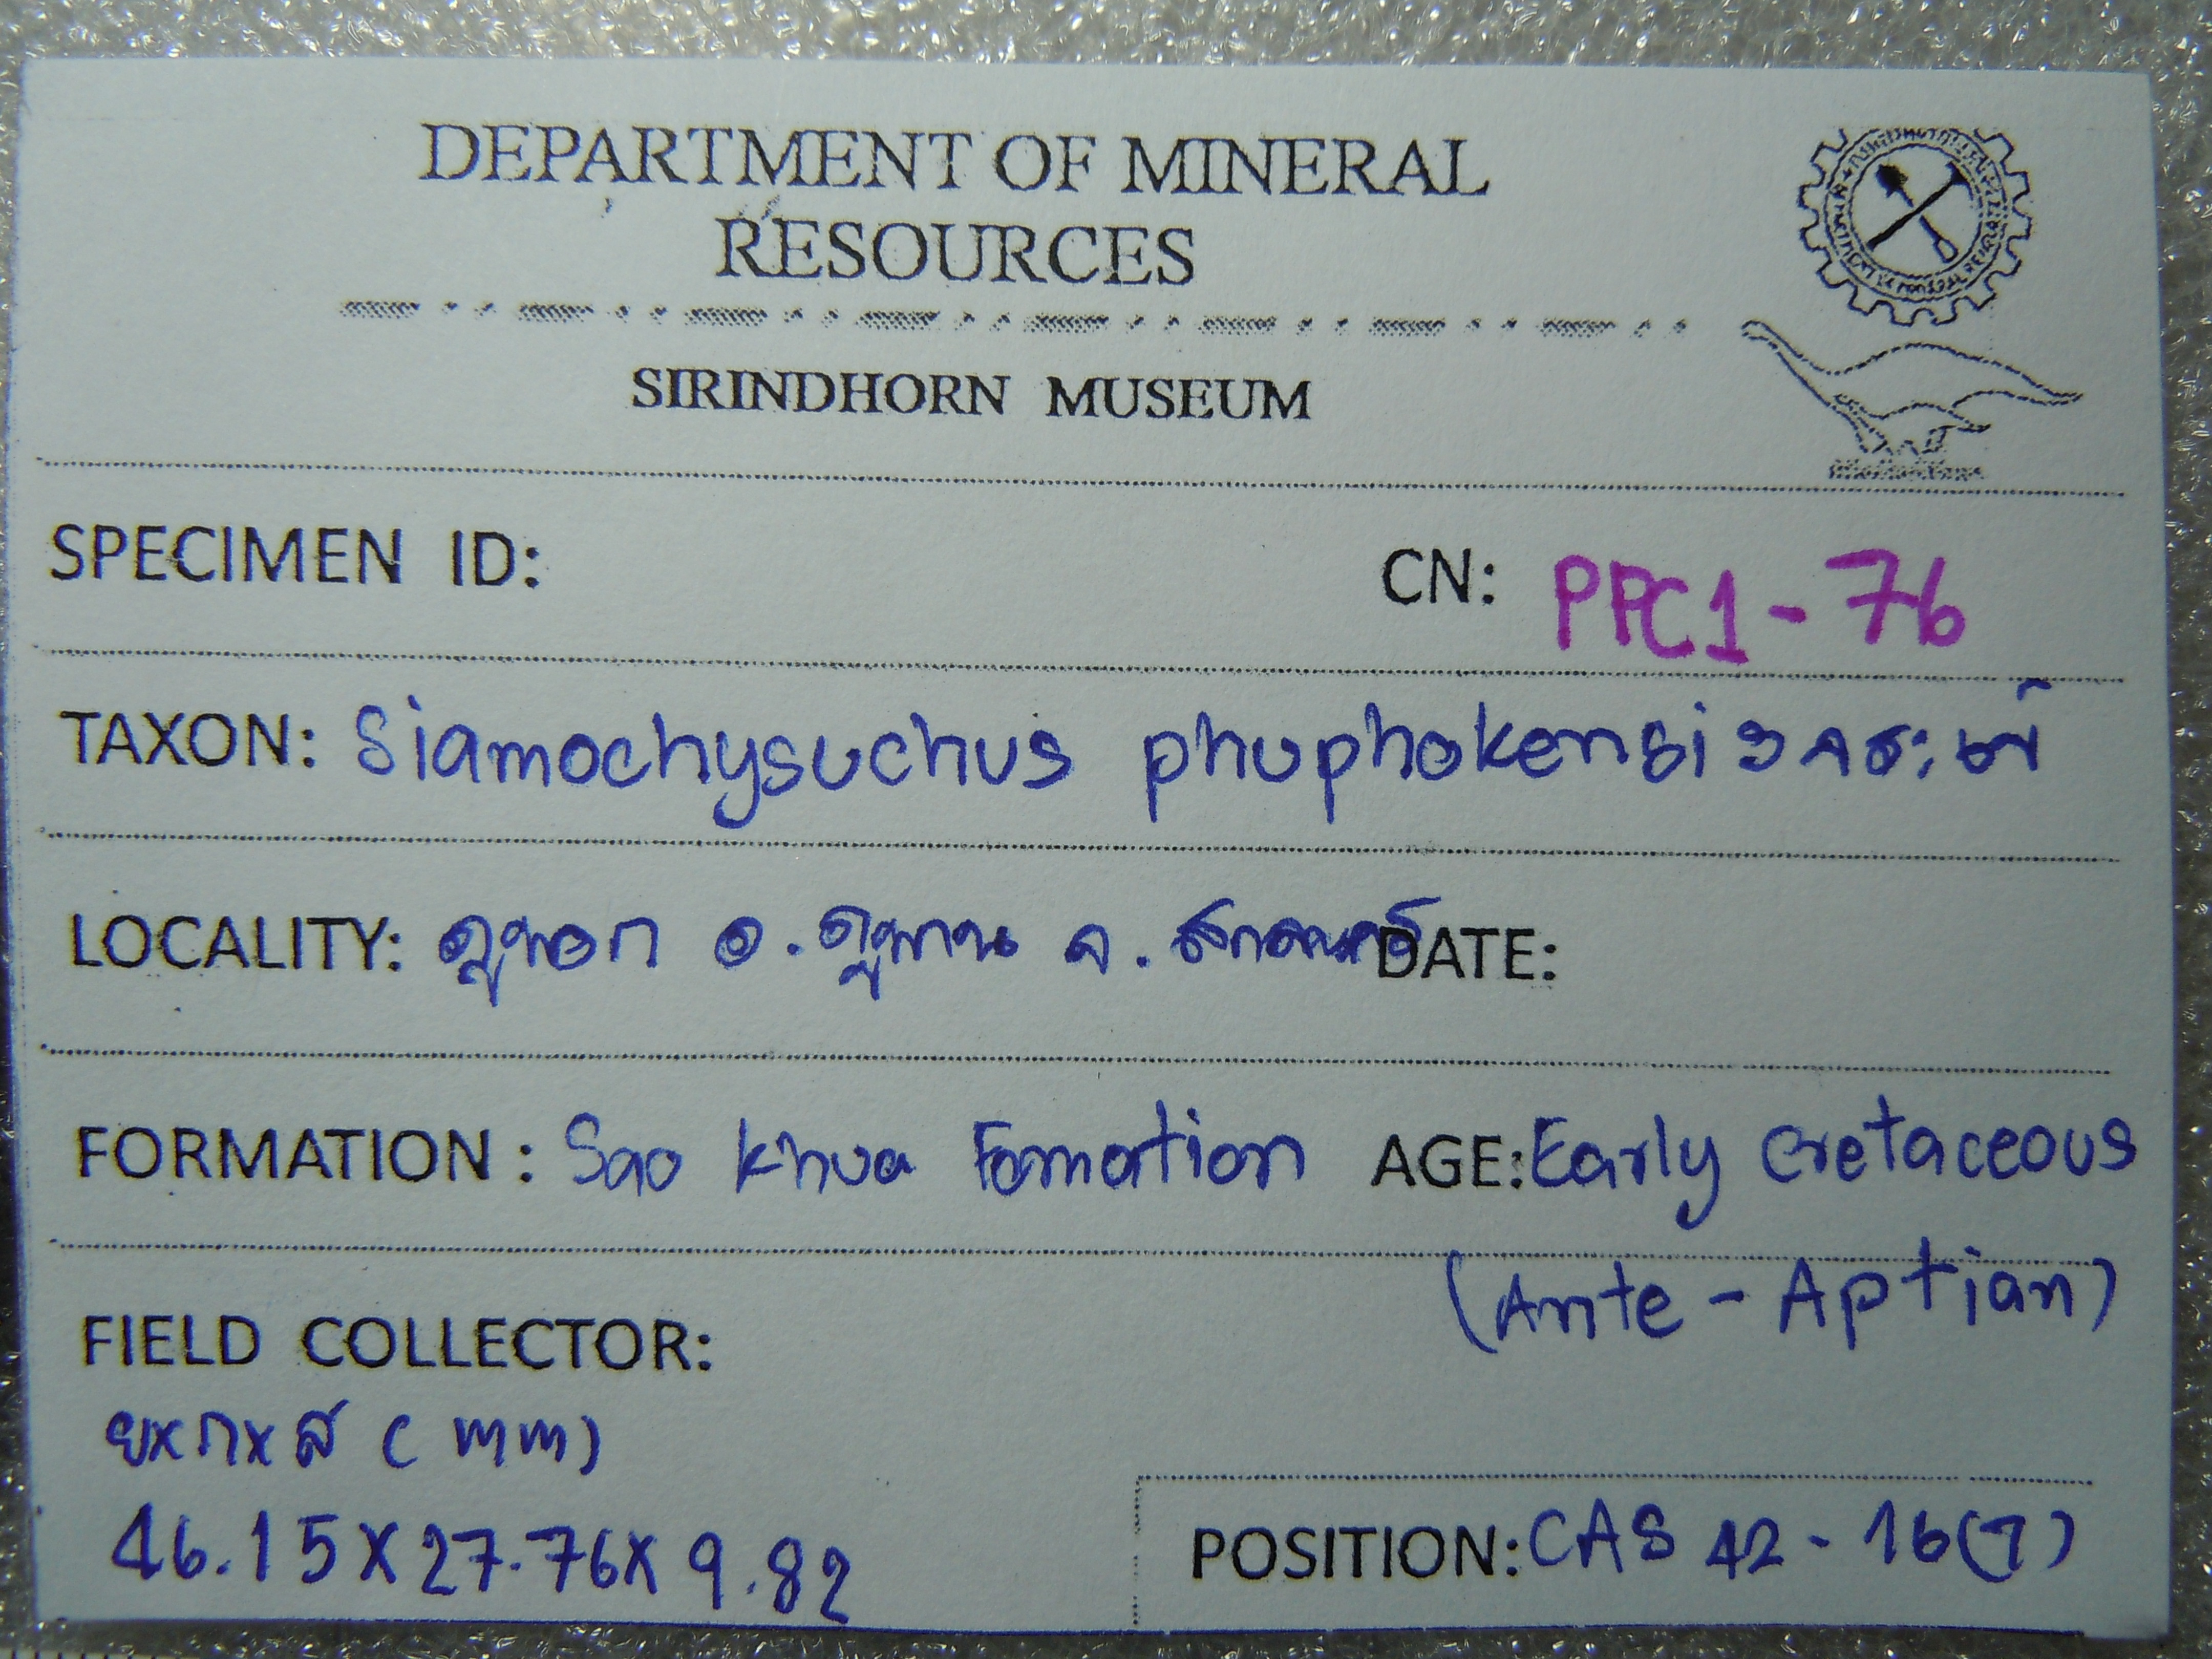 DEPARTMENT OF MINERAL
RESOURCES
SIRINDHORN MUSEUM
SPECIMEN ID: CN: PPC1-76
TAXON: Siamochysuchus phuphokensis
LOCALITY: ภูพอก อ.ภูพาน จ.สกลนคร DATE:
FORMATION : Sao Khua Fomation AGE: Early Cretaceous
(Ante-Aptian)
FIELD COLLECTOR:
ยxกxส (mm)
46.15x27.76x9.82
POSITION: CAS 42-16(7)